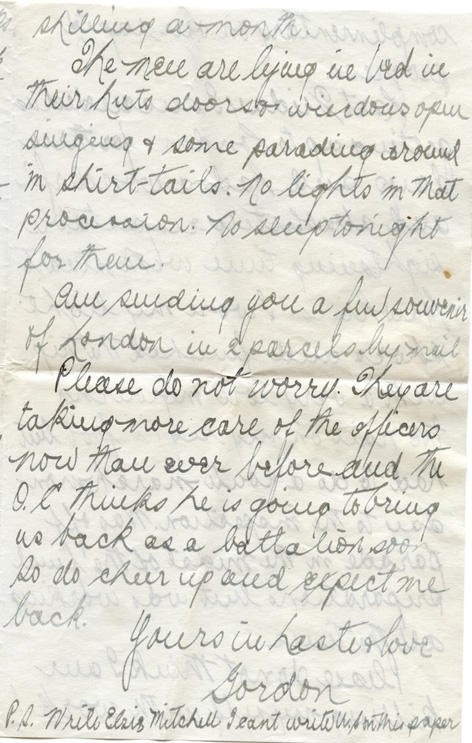 shilling a month
The men are lying in bed in
their huts doors & windows open
singing & some parading around
in shirt-tails. No lights in that
procession. No sleep tonight
for them.
Am sending you a few souvenir
of London in 2 parcels by mail
Please do not worry. They are
taking more care of the officers
now than ever before and the
O.C thinks he is going to bring
us back as a battalion soon
so do cheer up and expect me
back.
Yours in haste & love
Gordon
P.S. Write Elzie Mitchell I cant write on this paper